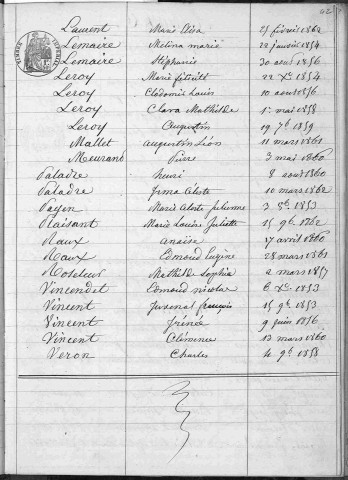 Laurent Marie Elisa 27 février 1862
Lemaire Melina marie 22 janvier 1854
Lemaire Stéphanie 30 août 1856
Leroy Marie 22 Xbre 1854
Leroy Clodomir Louis 10 août 1856
Leroy Clara Mathilde 1er mai 1858
Leroy Augustin 19 7b 1859
Mallet Augustin Léon 11 mars 1861
Meurand Pierre 3 mai 1860
Paladre henri 8 août 1860
Paladre Irma Aloste 10 mars 1862
Payen Marie Aloste Julienne 3 1853
Plaisant Marie Louise Juliette 15 9b 1862
Raux Anaïse 17 avril 1860
Raux Edmond Eugène 28 mars 1861
Roseleur Mathilde Sophia 2 mars 1857
Vincendet Edmond nicolas 6 Xbre 1853
Vincent Juvenal françois 15 9b 1853
Vincent Irénée 9 juin 1856
Vincent Clémence 13 mars 1860
Veron Charles 4 9b 1858